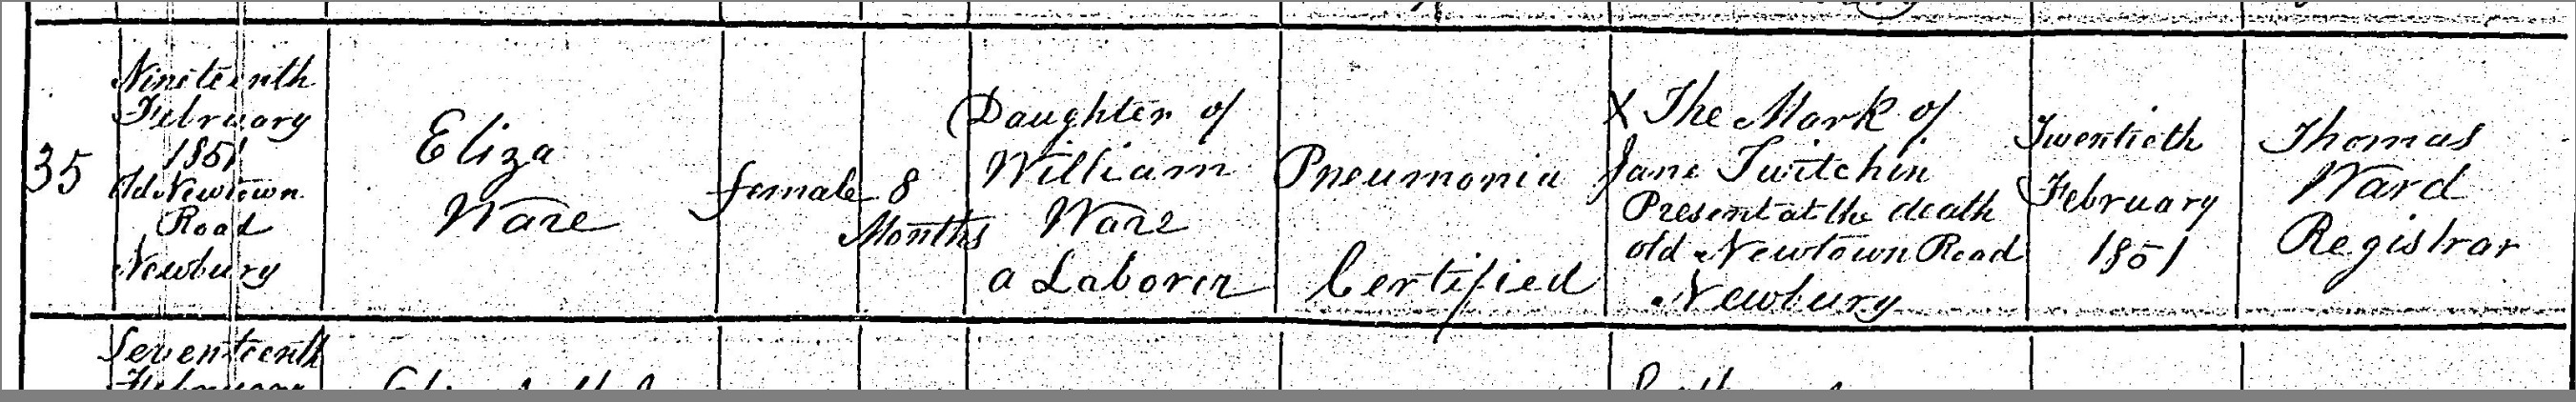 35
Nineteenth
February
1851
Old Newtown
Road
Newbury
Eliza
Ware
female
8
Months
Daughter of
William
Ware
a Laborer
Pneumonia
Certified
X The Mark of
Jane Twitchin
Present at the death
old Newtown Road
Newbury
Twentieth
February
1851
Thomas
Ward
Registrar
Seventeenth
February